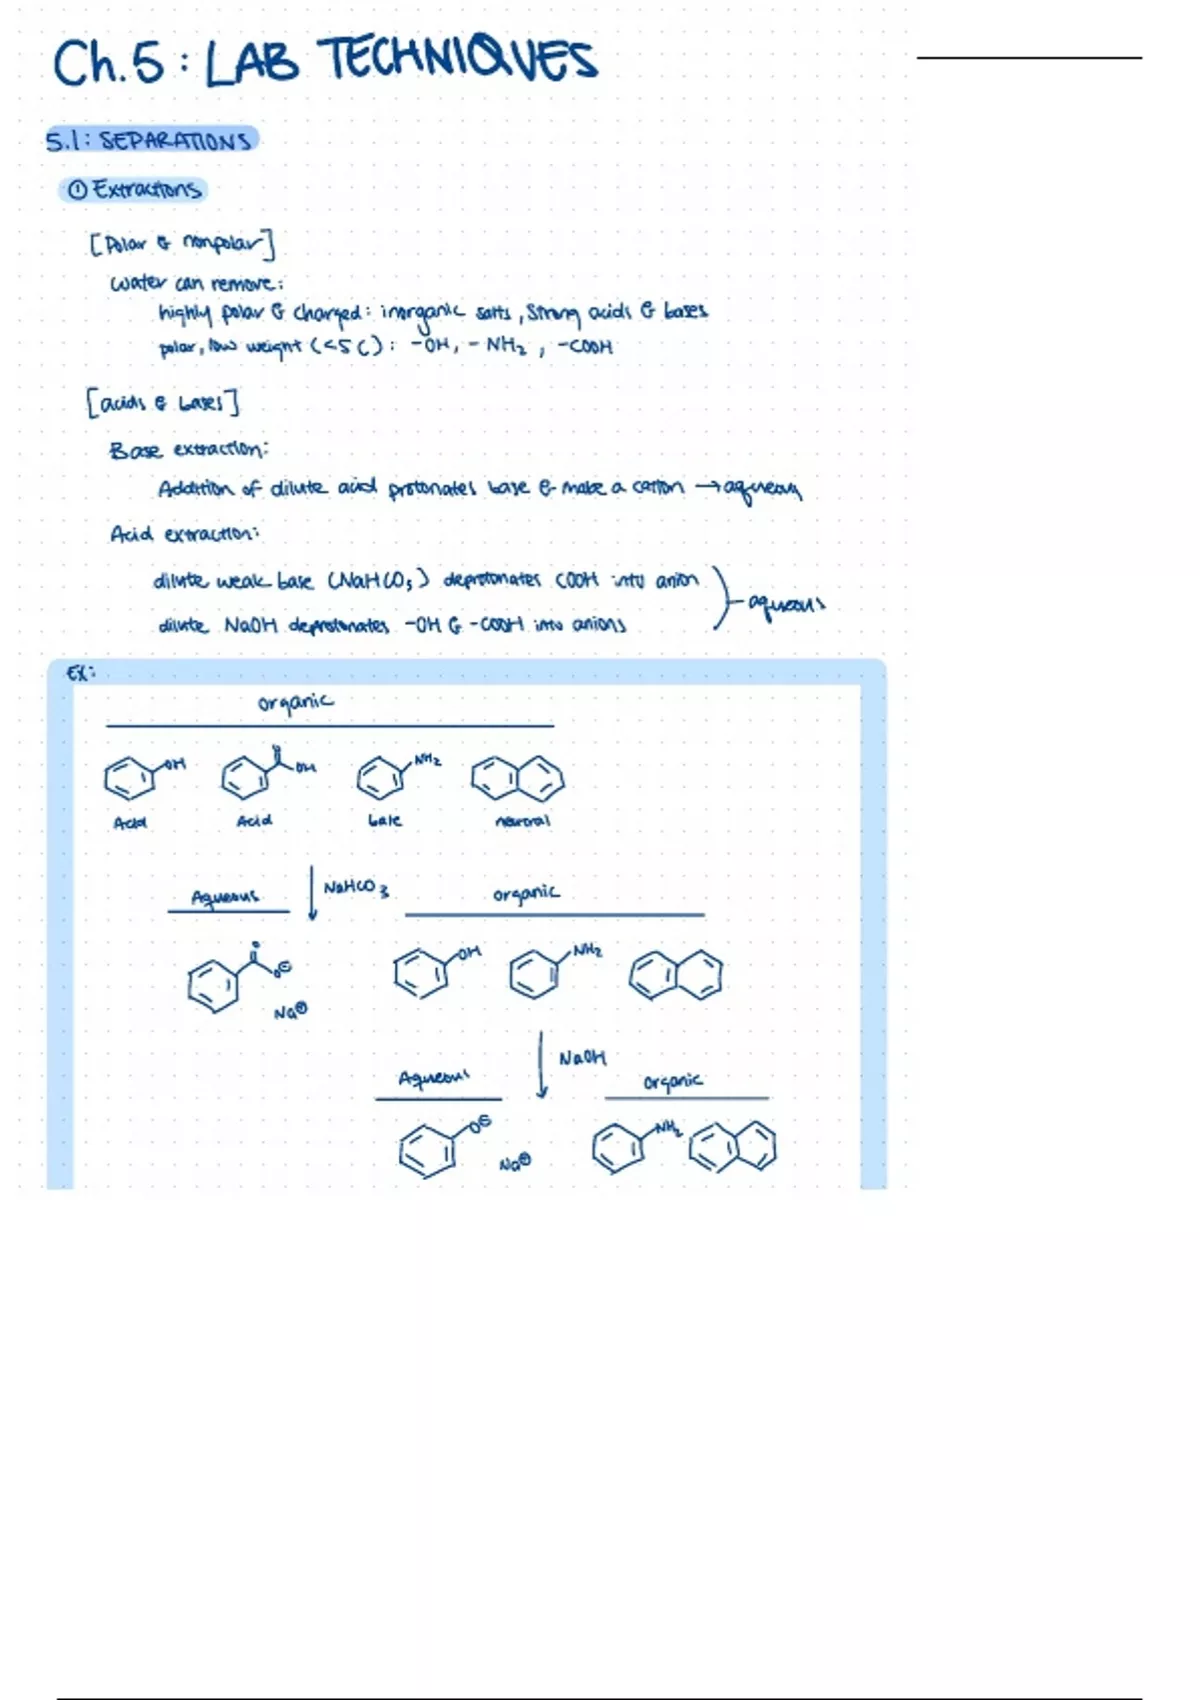 Ch.5: LAB TECHNIQUES
5.1: SEPARATIONS
① Extractions
[Polar & nonpolar]
Water can remove:
highly polar & charged: inorganic salts, strong acids & bases
polar, low weight (<5 C): -OH, -NH₂, -COOH
[acids & bases]
Base extraction:
Addition of dilute acid protonates base & make a cation → aqueous
Acid extraction:
dilute weak base (NaHCO₃) deprotonates COOH into anion
dilute NaOH deprotonates -OH & -COOH into anions
aqueous
Ex:
organic
OH O OH NH₂
Acid Acid base neutral
NaHCO₃
Aqueous organic
O O⊖ OH NH₂
Na⊕
NaOH
Aqueous organic
O⊖ NH₂
Na⊕